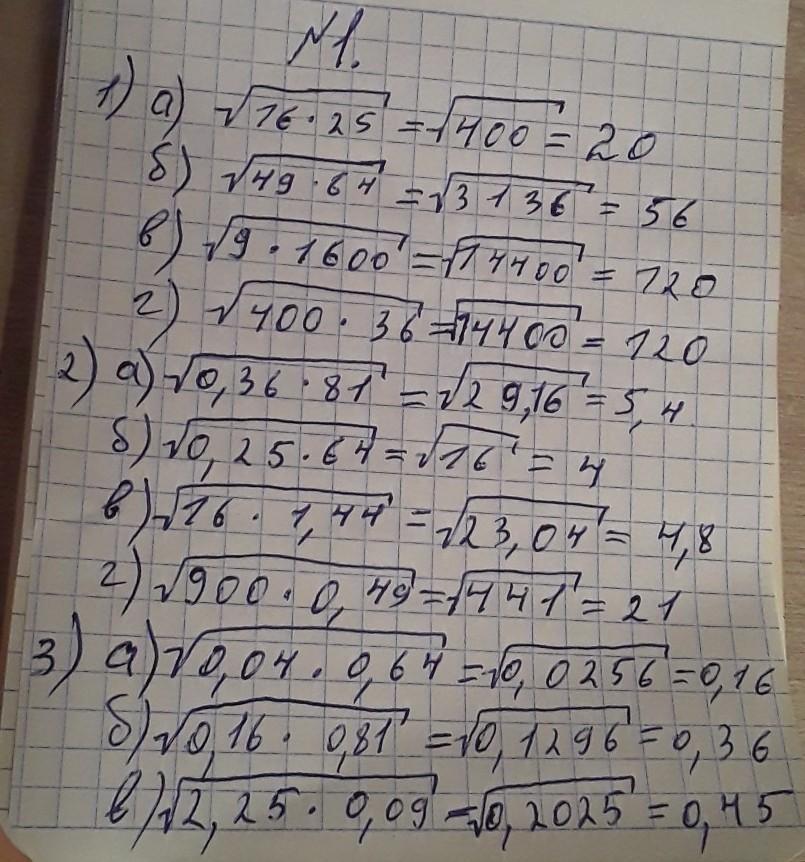 №1.
1) а) √16·25 = √400 = 20
б) √49·64 = √3136 = 56
в) √9·1600 = √14400 = 120
г) √400·36 = √14400 = 120
2) а) √0,36·81 = √29,16 = 5,4
б) √0,25·64 = √16 = 4
в) √16·1,44 = √23,04 = 4,8
г) √900·0,49 = √441 = 21
3) а) √0,04·0,64 = √0,0256 = 0,16
б) √0,16·0,81 = √0,1296 = 0,36
в) √2,25·0,09 = √0,2025 = 0,45